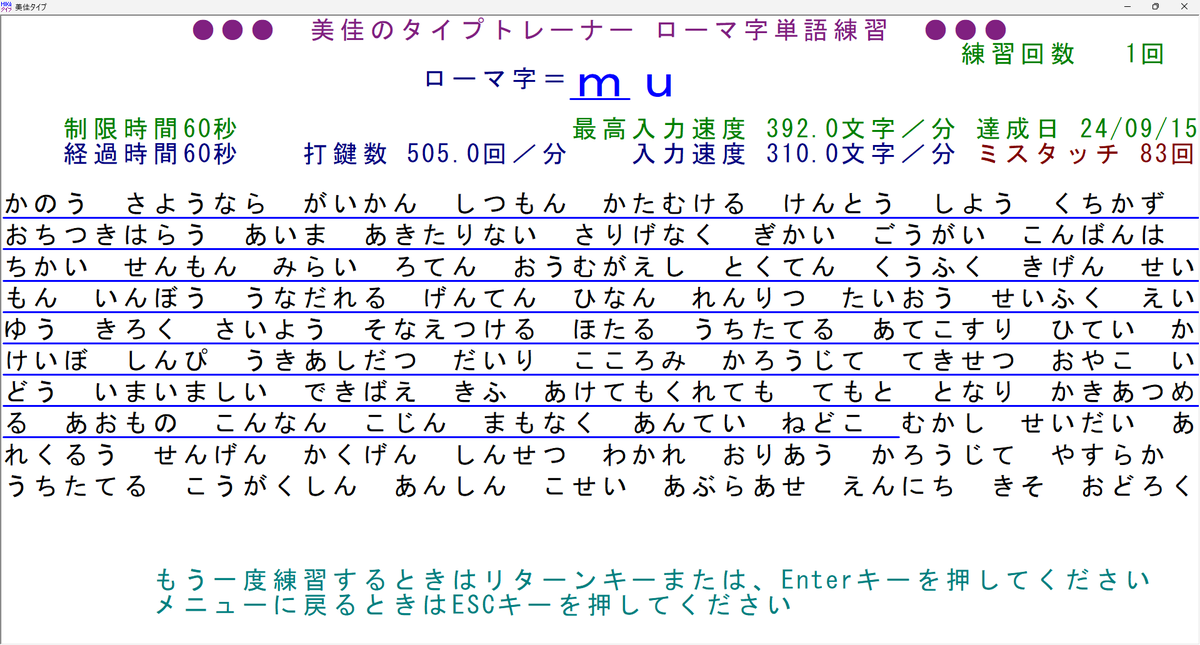 美佳タイプ
●●● 美佳のタイプトレーナー ローマ字単語練習 ●●●
練習回数 1回
ローマ字＝ｍｕ
制限時間60秒 最高入力速度 392.0文字／分 達成日 24/09/15
経過時間60秒 打鍵数 505.0回／分 入力速度 310.0文字／分 ミスタッチ 83回
かのう さようなら がいかん しつもん かたむける けんとう しよう くちかず
おちつきはらう あいま あきたりない さりげなく ぎかい ごうがい こんばんは
ちかい せんもん みらい ろてん おうむがえし とくてん くうふく きげん せい
もん いんぼう うなだれる げんてん ひなん れんりつ たいおう せいふく えい
ゆう きろく さいよう そなえつける ほたる うちたてる あてこすり ひてい か
けいぼ しんぴ うきあしだつ だいり こころみ かろうじて てきせつ おやこ い
どう いまいましい できばえ きふ あけてもくれても てもと となり かきあつめ
る あおもの こんなん こじん まもなく あんてい ねどこ むかし せいだい あ
れくるう せんげん かくげん しんせつ わかれ おりあう かろうじて やすらか
うちたてる こうがくしん あんしん こせい あぶらあせ えんにち きそ おどろく
もう一度練習するときはリターンキーまたは、Enterキーを押してください
メニューに戻るときはESCキーを押してください